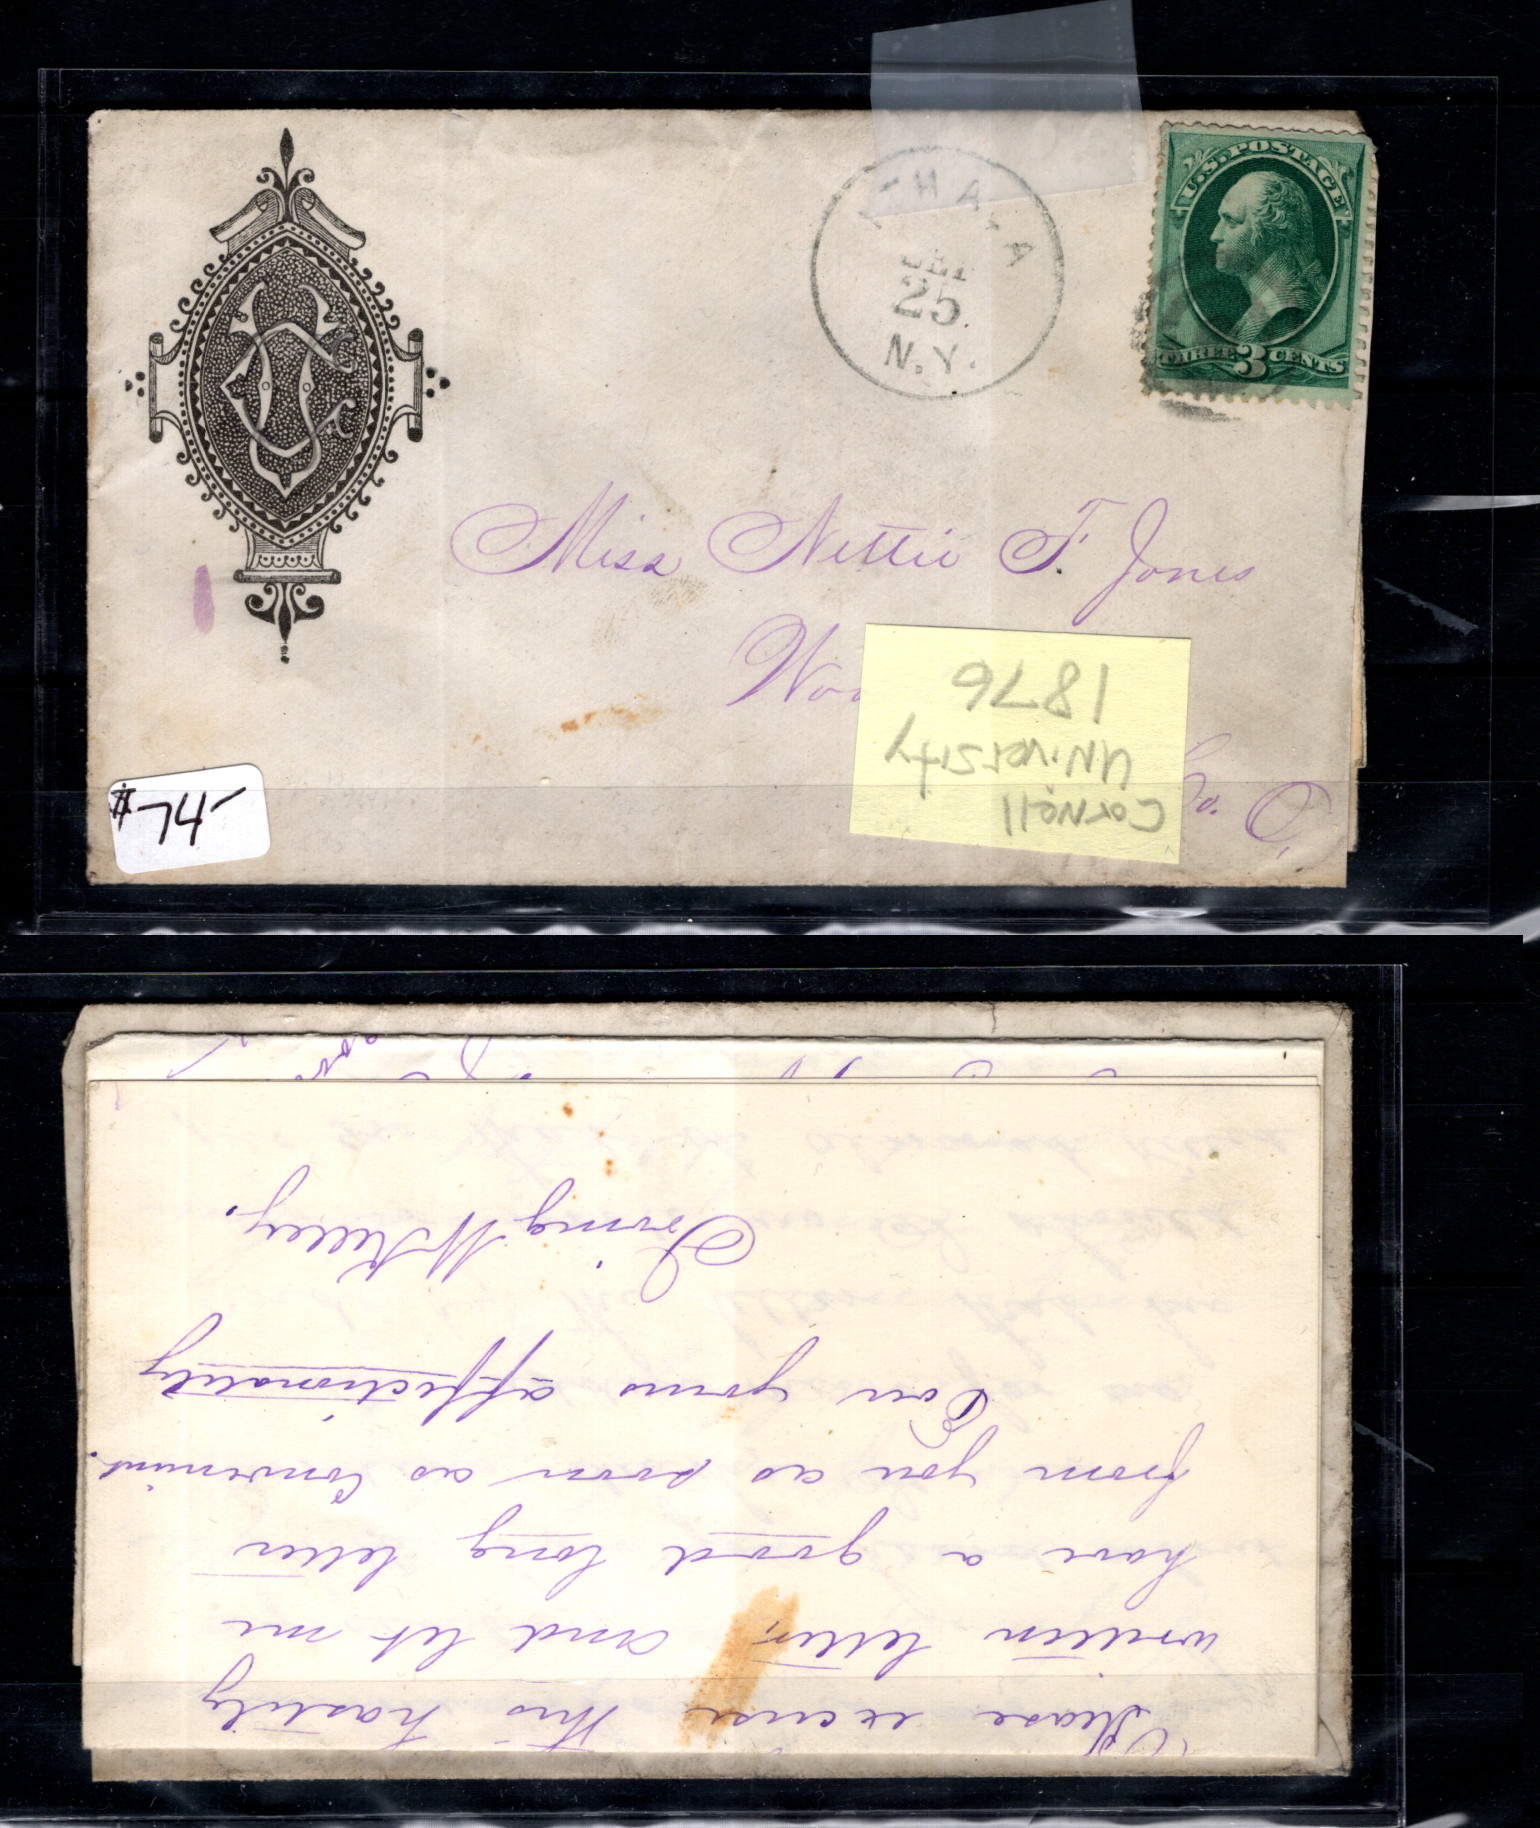 ITHACA
SEP
25
N.Y.
U.S. POSTAGE
THREE 3 CENTS
Miss Nettie F. Jones
Co. O.
1876
UNiversity
CorNell
$74-
Please excuse this hastily
written letter, and let me
have a good long letter
from you as soon as Convenient.
Ever yours affectionately
Irving W Kelley.